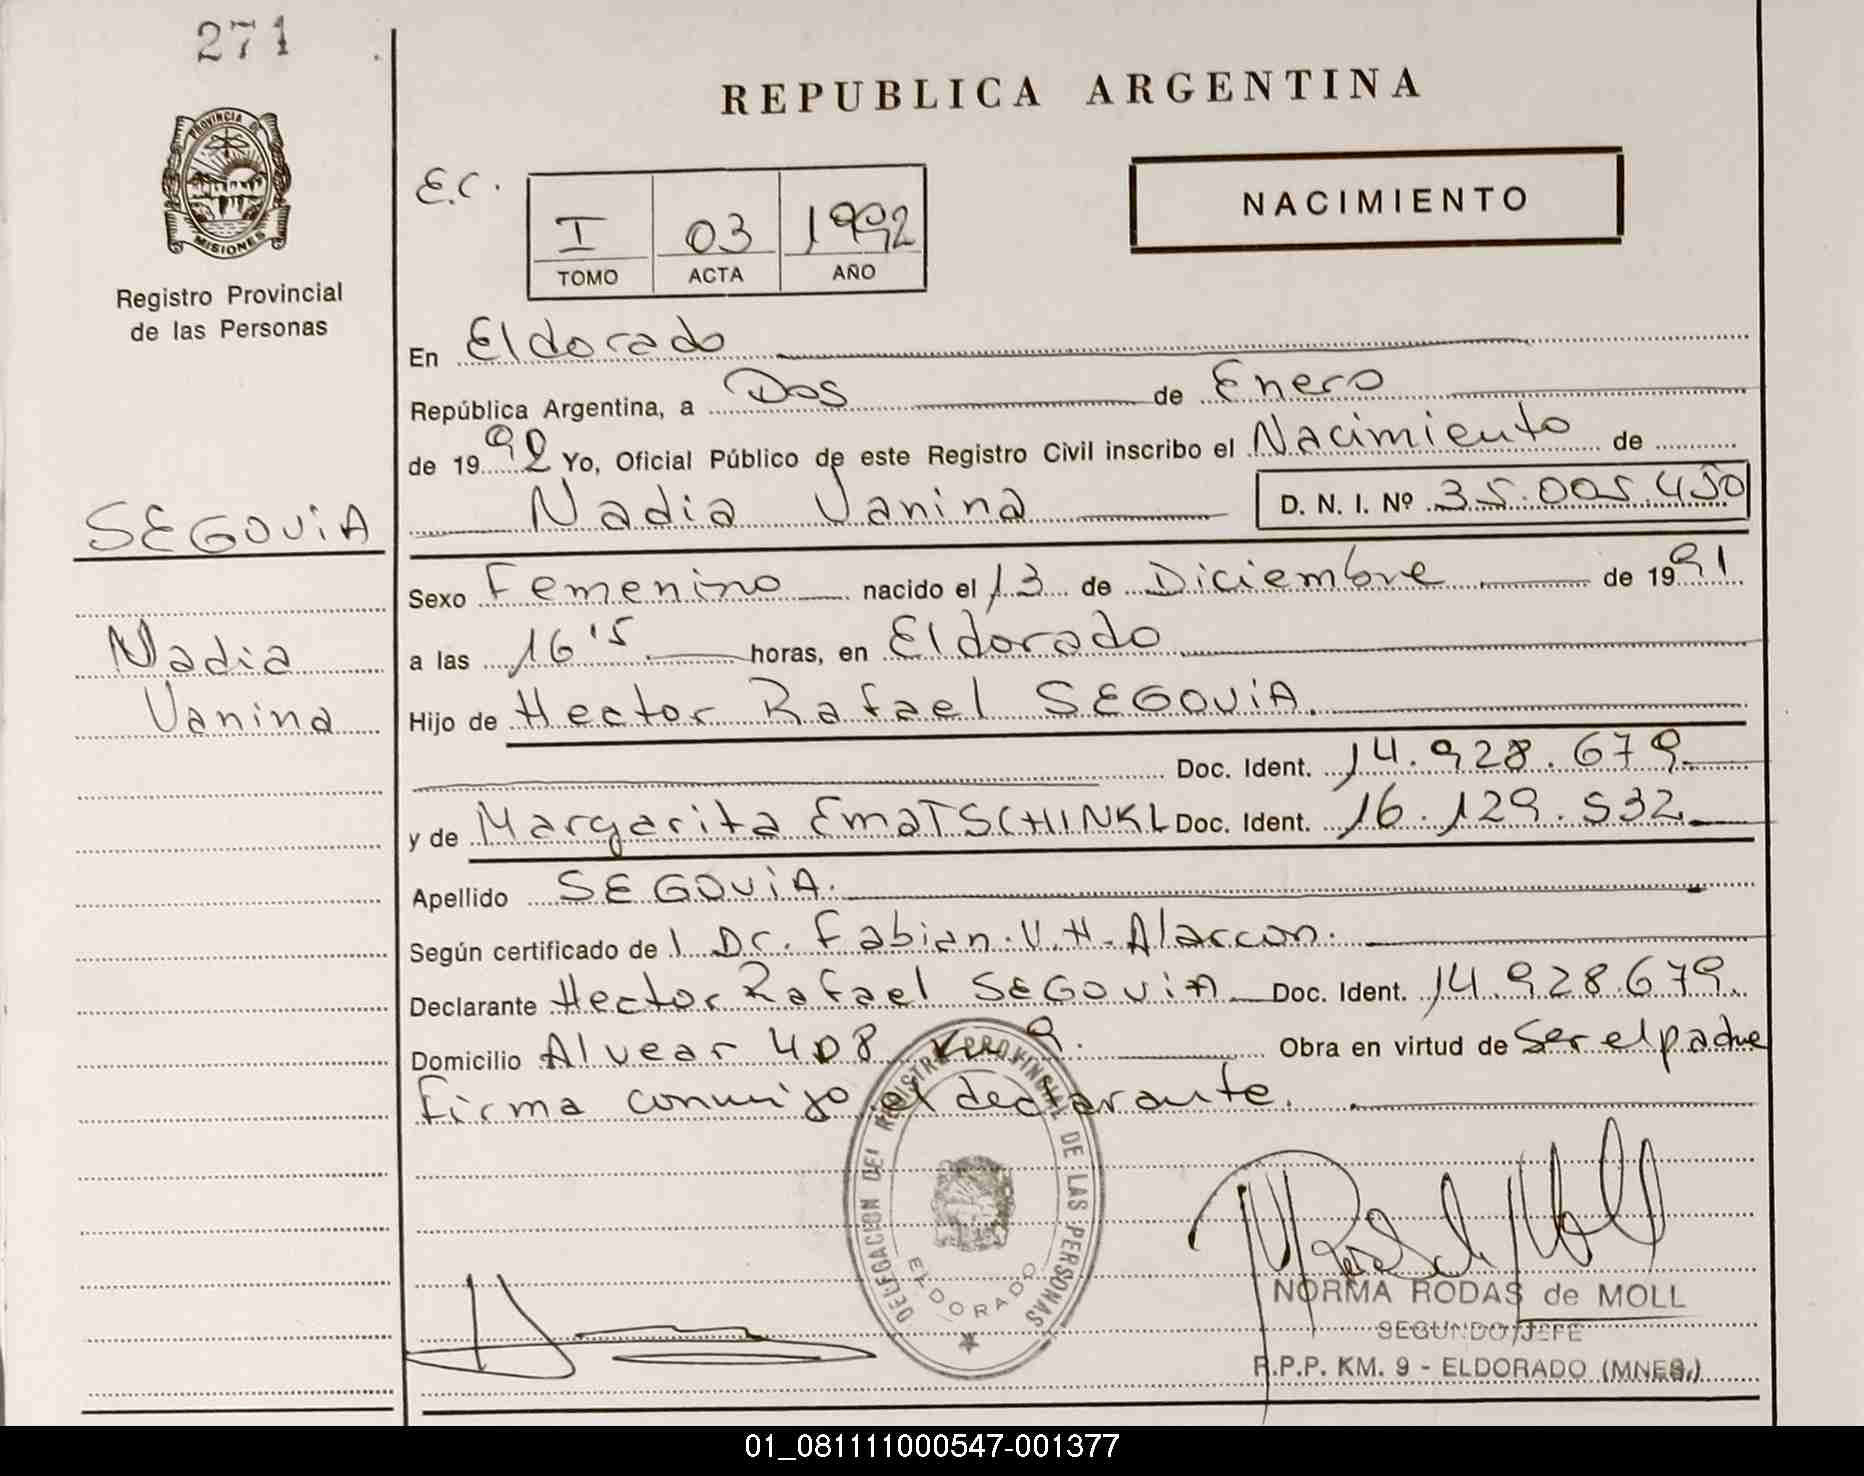 271
REPUBLICA ARGENTINA
PROVINCIA DE
MISIONES
Registro Provincial
de las Personas
E.C.
I 03 1992
TOMO ACTA AÑO
NACIMIENTO
En Eldorado
República Argentina, a Dos de Enero
de 1992 Yo, Oficial Público de este Registro Civil inscribo el Nacimiento de
Nadia Vanina D. N. I. Nº 35.005.450
SEGOViA
Nadia
Vanina
Sexo Femenino nacido el 13 de Diciembre de 1991
a las 16'5 horas, en Eldorado
Hijo de Hector Rafael SEGOViA.
Doc. Ident. 14.928.679.
y de Margarita Ema TSCHINKL Doc. Ident. 16.129.532.
Apellido SEGOViA.
Según certificado de l Dr. Fabian. V. H. Alarcon.
Declarante Hector Rafael SEGOViA Doc. Ident. 14.928.679.
Domicilio Alvear 408 Km 9. Obra en virtud de Ser el padre
Firma conmigo el declarante.
DELEGACION DEL REGISTRO PROVINCIAL DE LAS PERSONAS
ELDORADO
NORMA RODAS de MOLL
SEGUNDO JEFE
R.P.P. KM. 9 - ELDORADO (MNES.)
01_081111000547-001377